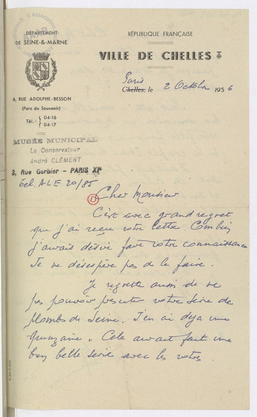 DÉPARTEMENT
DE SEINE-&-MARNE
RÉPUBLIQUE FRANÇAISE
VILLE DE CHELLES
6, RUE ADOLPHE-BESSON
(Parc du Souvenir)
Tél. : 04-16
04-17
Paris
Chelles, le 2 Octobre 1956
MUSÉE MUNICIPAL
Le Conservateur
André CLÉMENT
2, Rue Gerbier - PARIS XIe
tel. ALE 20/85
Cher Monsieur
C'est avec grand regret
que j'ai reçu votre lettre Combien
j'aurais désiré faire votre connaissance
Je ne désespère pas de le faire.
Je regrette aussi de ne
pas pouvoir votre série de
Plombs de Seine. J'en ai déjà une
quinzaine. Cela aurait fait une
bien belle série avec les votres